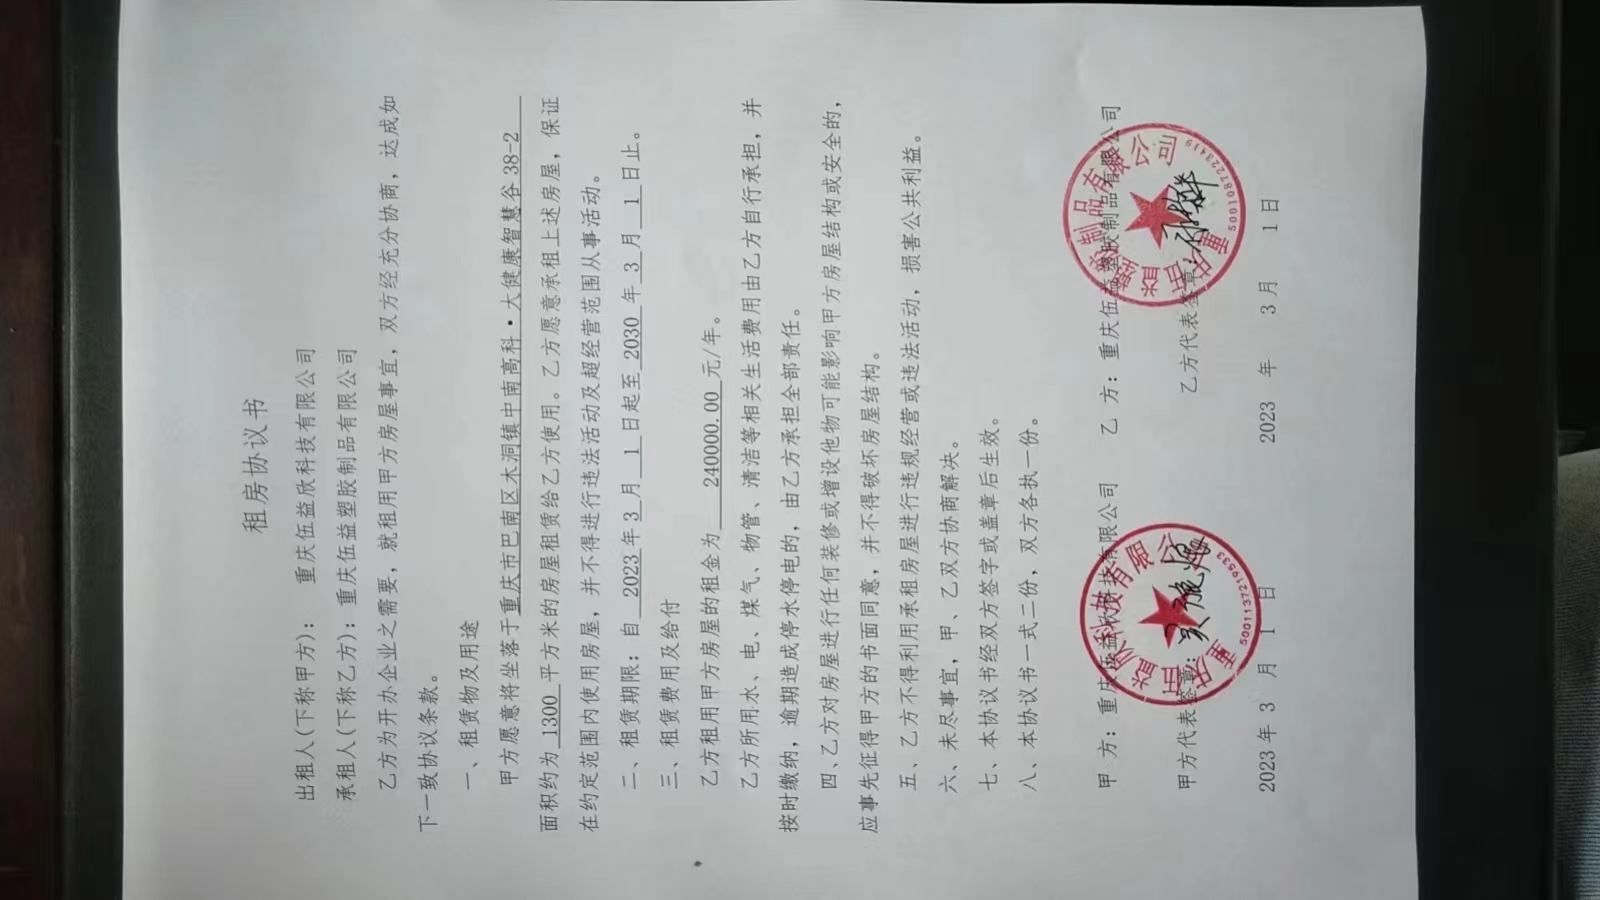 租房协议书
出租人(下称甲方)： 重庆伍益欣科技有限公司
承租人(下称乙方)：重庆伍益塑胶制品有限公司
乙方为开办企业之需要，就租用甲方房屋事宜，双方经充分协商，达成如
下一致协议条款。
一、租赁物及用途
甲方愿意将坐落于重庆市巴南区木洞镇中南高科·大健康智慧谷38-2
面积约为 1300 平方米的房屋租赁给乙方使用。乙方愿意承租上述房屋，保证
在约定范围内使用房屋，并不得进行违法活动及超经营范围从事活动。
二、租赁期限：自 2023 年 3 月 1 日起至 2030 年 3 月 1 日止。
三、租赁费用及给付
乙方租用甲方房屋的租金为 240000.00 元/年。
乙方所用水、电、煤气、物管、清洁等相关生活费用由乙方自行承担，并
按时缴纳，逾期造成停水停电的，由乙方承担全部责任。
四、乙方对房屋进行任何装修或增设他物可能影响甲方房屋结构或安全的，
应事先征得甲方的书面同意，并不得破坏房屋结构。
五、乙方不得利用承租房屋进行违规经营或违法活动，损害公共利益。
六、未尽事宜，甲、乙双方协商解决。
七、本协议书经双方签字或盖章后生效。
八、本协议书一式二份，双方各执一份。
甲 方：重庆伍益欣科技有限公司 乙 方：重庆伍益塑胶制品有限公司
甲方代表签章： 乙方代表签章：
2023 年 3 月 1 日 2023 年 3 月 1 日
5001137219533
5001087223419